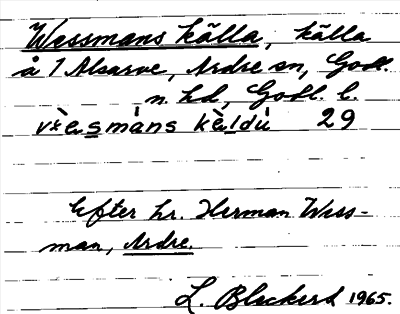 Wessmans källa, källa
å 1 Alsarve, Ardre sn, Gotl.
n. hd, Gotl. l.
kè̀ldù 29
Efter hr. Herman Wess-
man, Ardre.
L. 1965.